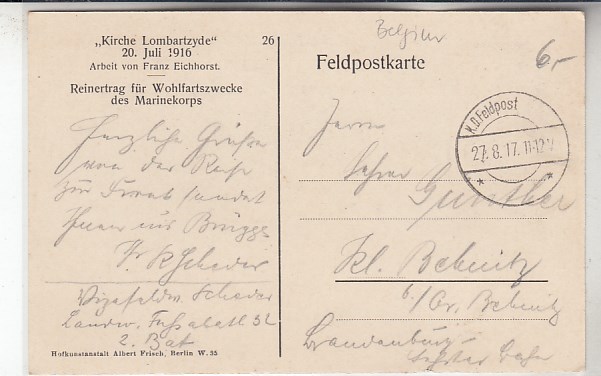 „Kirche Lombartzyde" 26
20. Juli 1916
Arbeit von Franz Eichhorst.
Reinertrag für Wohlfartszwecke
des Marinekorps
Herzliche Grüße
von der Reise
zur Front sendet
Ihnen aus Brügge
Scheder
Vizefeldw. Scheder
Landw. Fußabatl 32
2. Bat
Hofkunstanstalt Albert Frisch, Berlin W. 35
Belgien
6.-
Feldpostkarte
K.D.Feldpost
27.8.17. 11-12V
* *
Herrn
Lehrer Günther
Kl. Behnitz
b/Gr. Behnitz
Brandenburg